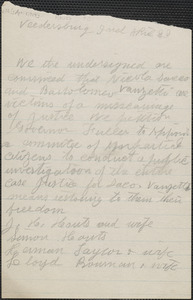 Veedersburg Ind
We the undersigned are
convinced that Nicola Sacco
and Bartolomeo Vanzetti are
victims of a miscarriage
of justice We petition
Governor Fuller to appoint
a committy of impartial
citizens to conduct a public
investigation of the entire
case justice for Sacco Vanzetti
means restoring to them their
freedom
and wife
Simon
Herman Taylor & wife
Lloyd Bowman & wife